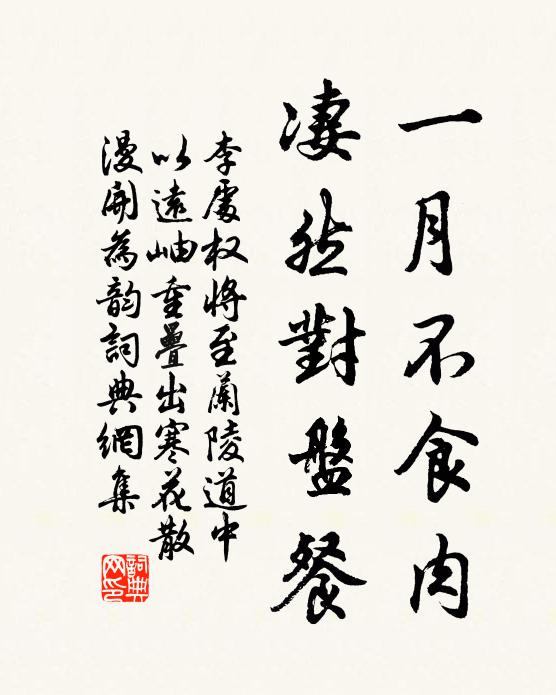 一月不食肉
凄然對盤餐
李處权將至蘭陵道中
以遠岫重疊出寒花散
漫開為韵詞典網集
詞典
网印